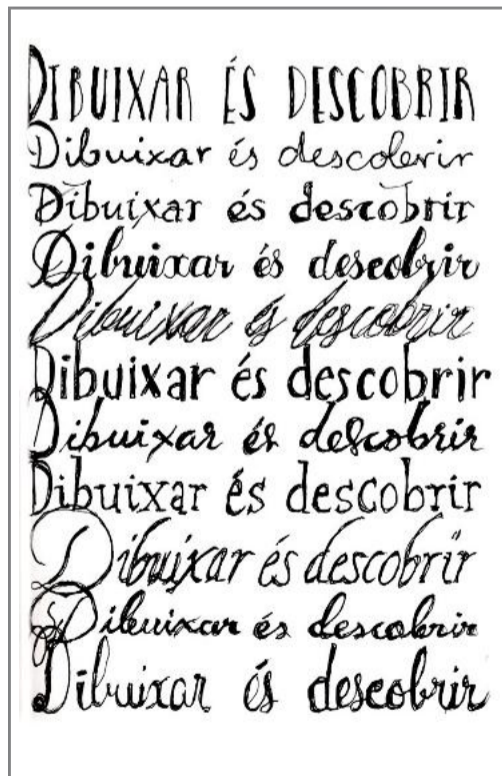 DIBUIXAR ÉS DESCOBRIR
Dibuixar és descobrir
Dibuixar és descobrir
Dibuixar és descobrir
Dibuixar és descobrir
Dibuixar és descobrir
Dibuixar és descobrir
Dibuixar és descobrir
Dibuixar és descobrir
Dibuixar és descobrir
Dibuixar és descobrir